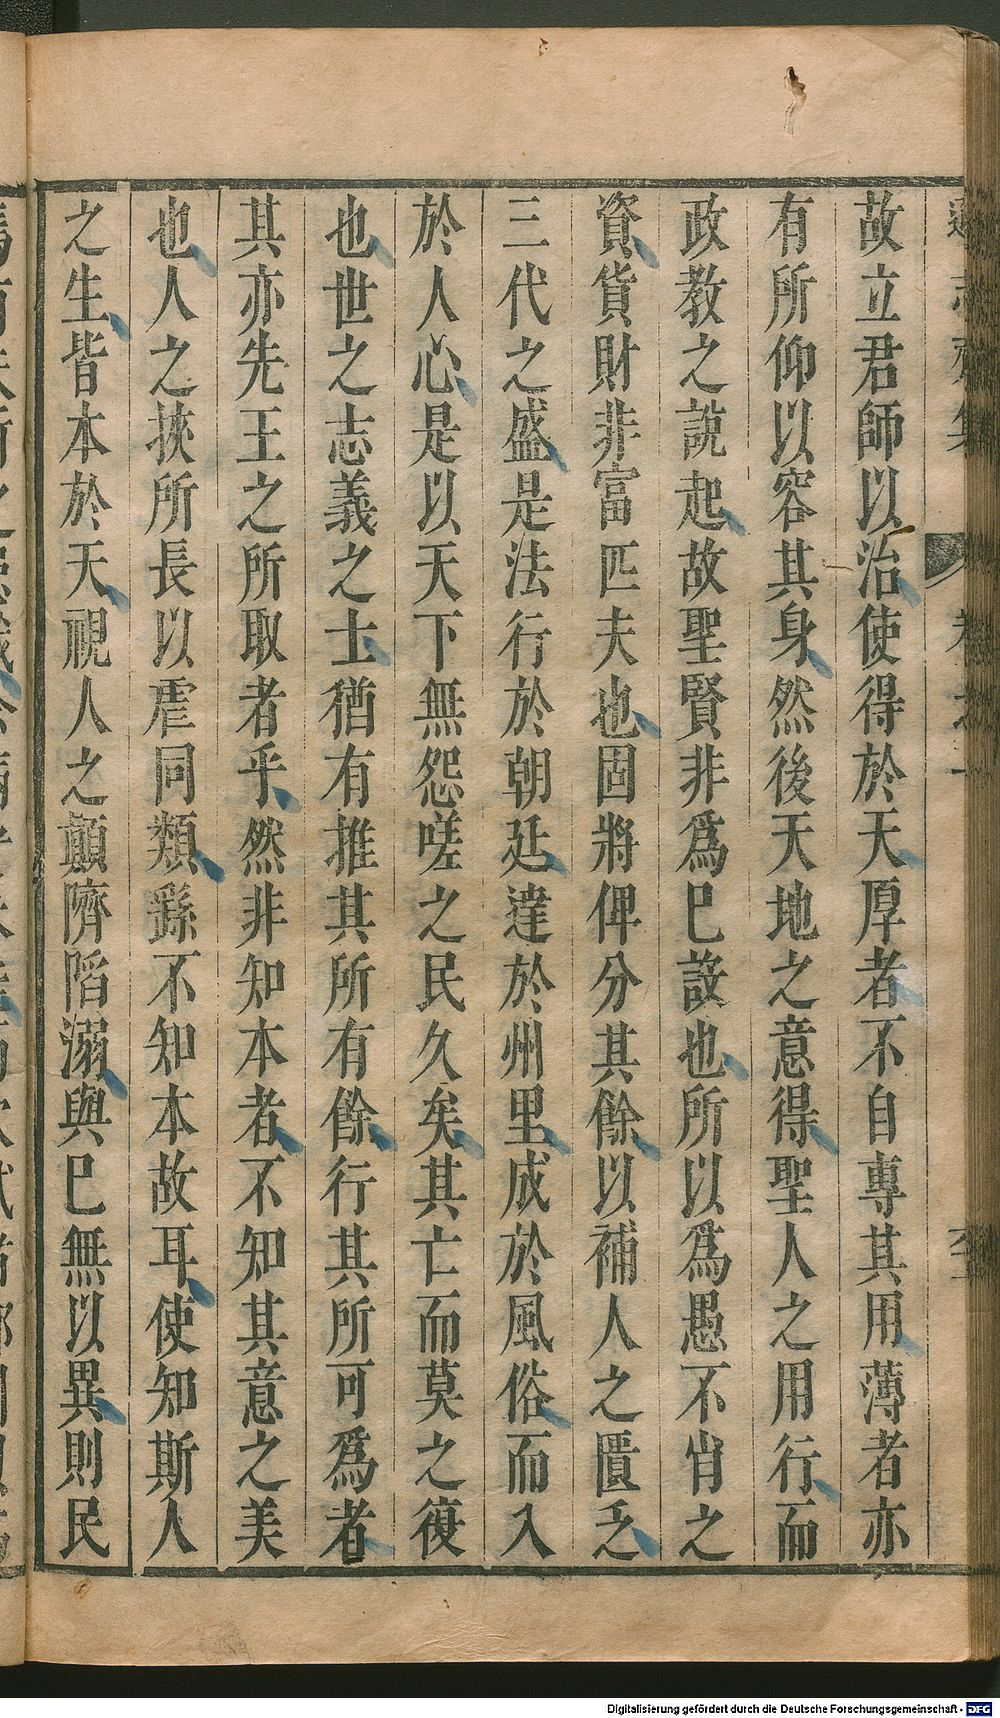 故立君師以治使得於天厚者不自專其用薄者亦
有所仰以容其身然後天地之意得聖人之用行而
政教之説起故聖賢非爲已設也所以爲愚不肖之
資貨財非富匹夫也固將俾分其餘以補人之匱乏
三代之盛是法行於朝廷達於州里成於風俗而入
於人心是以天下無怨嗟之民久矣其亡而莫之復
也世之志義之士猶有推其所有餘行其所可爲者
其亦先王之所取者乎然非知本者不知其意之美
也人之挾所長以虐同類繇不知本故耳使知斯人
之生皆本於天視人之顛隮陷溺與已無以異則民
Digitalisierung gefördert durch die Deutsche Forschungsgemeinschaft - DFG